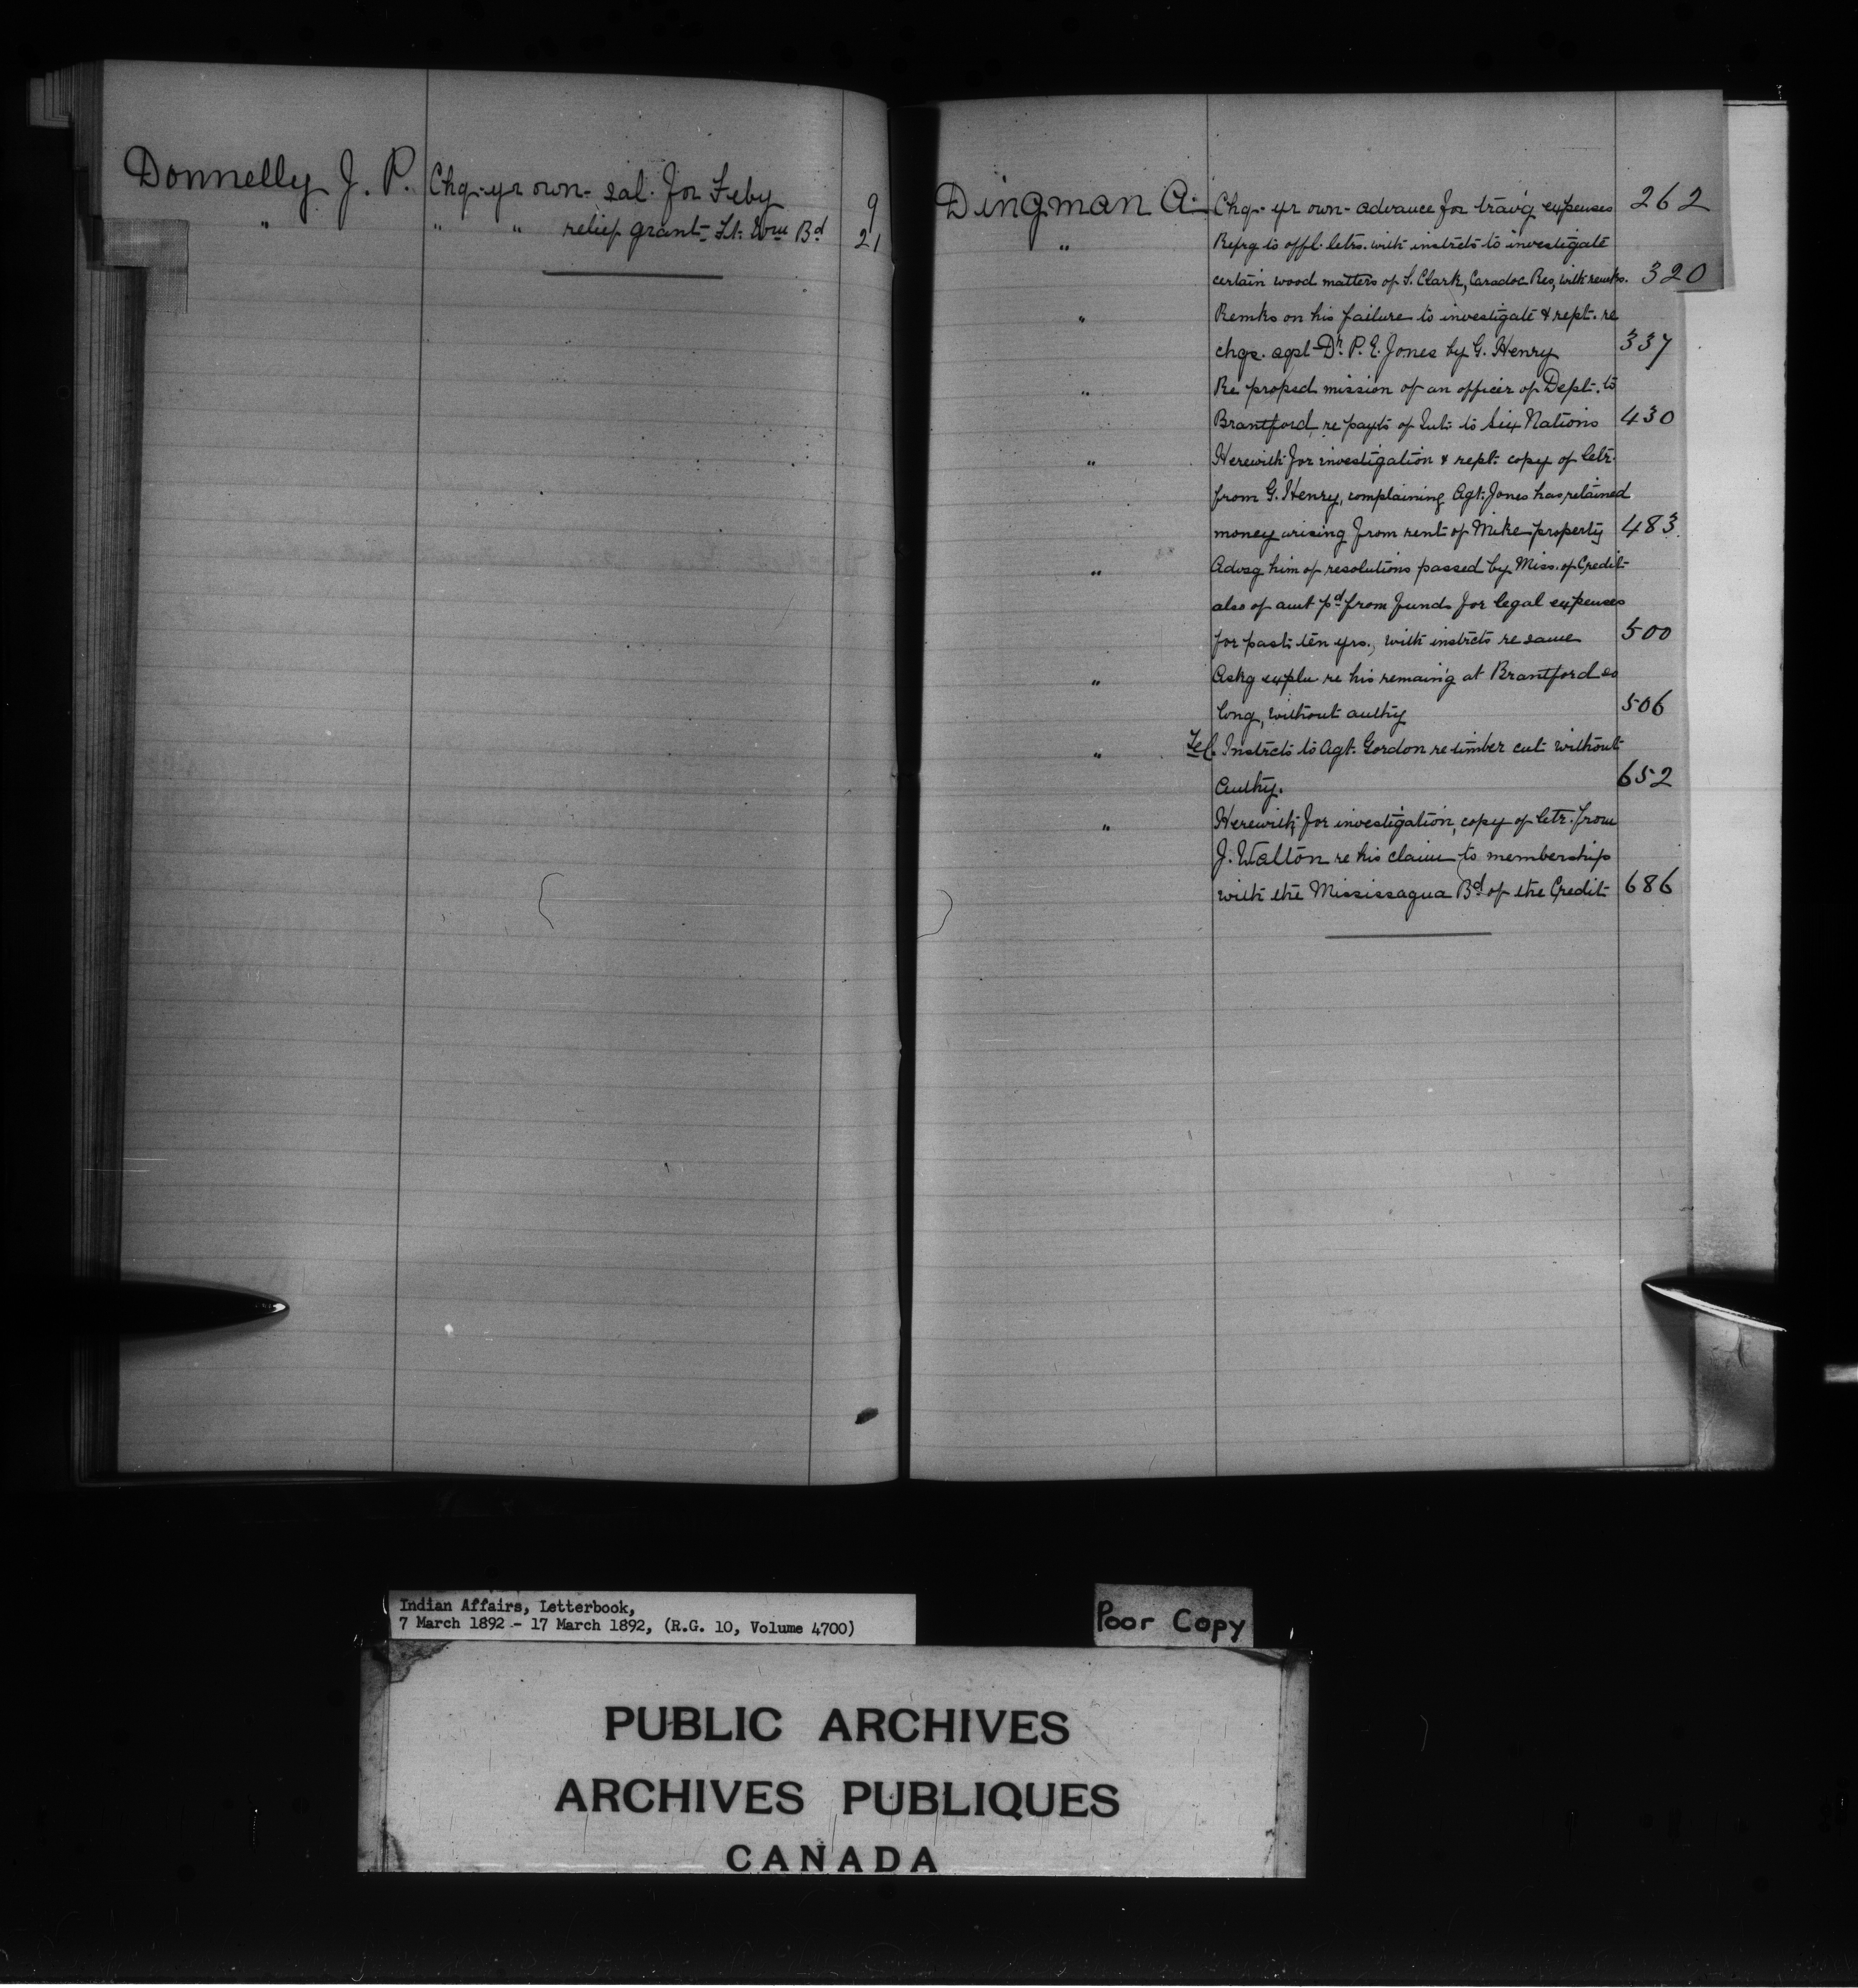 Donnelly J. P. Chq. yr own - sal. for Feby 9
" " " relief grant - Ft. Wm Bd 21
Dingman A. Chq. yr own - advance for travg expenses 262
" Refrg to offl. letrs. with instrcts to investigate
certain wood matters of S. Clark, Caradoc Res, with remks. 320
" Remks on his failure to investigate & rept. re
chgs. agst Dr. P. E. Jones by G. Henry 337
" Re proped mission of an officer of Dept. to
Brantford re payts of Int. to Six Nations 430
" Herewith for investigation & rept. copy of letr.
from G. Henry, complaining Agt. Jones has retained
money arising from rent of Mike property 483
" Advsg him of resolutions passed by Miss. of Credit
also of amt pd from funds for legal expenses
for past ten yrs., with instrcts re same 500
" Askg expln re his remaing at Brantford so
long, without authy 506
" Tel. Instrcts to Agt. Gordon re timber cut without
Authy. 652
" Herewith for investigation, copy of letr. from
J. Walton re his claim to membership
with the Mississagua Bd of the Credit 686
Indian Affairs, Letterbook,
7 March 1892 - 17 March 1892, (R.G. 10, Volume 4700)
Poor Copy
PUBLIC ARCHIVES
ARCHIVES PUBLIQUES
CANADA